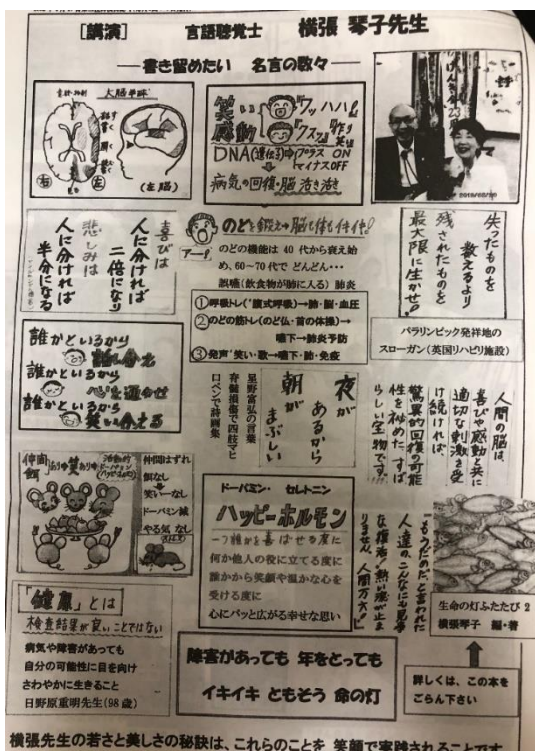 [講演] 言語聴覚士 横張 琴子先生
―書き留めたい 名言の数々―
大脳半球
話す
書く
聞く
読む
右
左
(左脳)
笑い
感動
『ワッハハ』
『クスッ』作り笑い
DNA(遺伝子)⇒プラス ON
マイナスOFF
病気の回復・脳 活き活き
喜びは
人に分ければ
二倍になり
悲しみは
人に分ければ
半分になる
のどを鍛え→脳も体もイキイキ!
アー!
のどの機能は 40 代から衰え始
め、60~70代で どんどん・・・
誤嚥(飲食物が肺に入る) 肺炎
①呼吸トレ(腹式呼吸)→肺・脳・血圧
②のどの筋トレ(のど仏・首の体操)→
嚥下→肺炎予防
③発声“笑い・歌→嚥下・肺・免疫
失ったものを
数えるより
残されたものを
最大限に生かせ!
パラリンピック発祥地の
スローガン(英国リハビリ施設)
誰かといるから
話し合え
誰かといるから
心を通わせ
誰かといるから
笑い合える
夜が
あるから
朝が
まぶしい
星野富弘の言葉
脊髄損傷で四肢マヒ
口ペンで詩画集
人間の脳は、
喜びや感動と共に
適切な刺激を受
け続ければ、
驚異的回復の可能
性を秘めた、すば
らしい宝物です!
仲間
餌
あり⇒
仲間はずれ
餌なし
笑い―なし
ドーパミン減
やる気 なし
ドーパミン・ セレトニン
ハッピーホルモン
―誰かを喜ばせる度に
何か他人の役に立てる度に
誰かから笑顔や温かな心を
受ける度に
心にパッと広がる幸せな思い
「もうだめだ」と言われた
人達の、こんなにも見事
な復活!熱い涙が止ま
りません。人間万才!
生命の灯ふたたび 2
横張琴子 編・著
「健康」とは
検査結果が良いことではない
病気や障害があっても
自分の可能性に目を向け
さわやかに生きること
日野原重明先生(98歳)
障害があっても 年をとっても
イキイキ ともそう 命の灯
詳しくは、この本を
ごらん下さい
横張先生の若さと美しさの秘訣は、これらのことを 笑顔で実践されることです